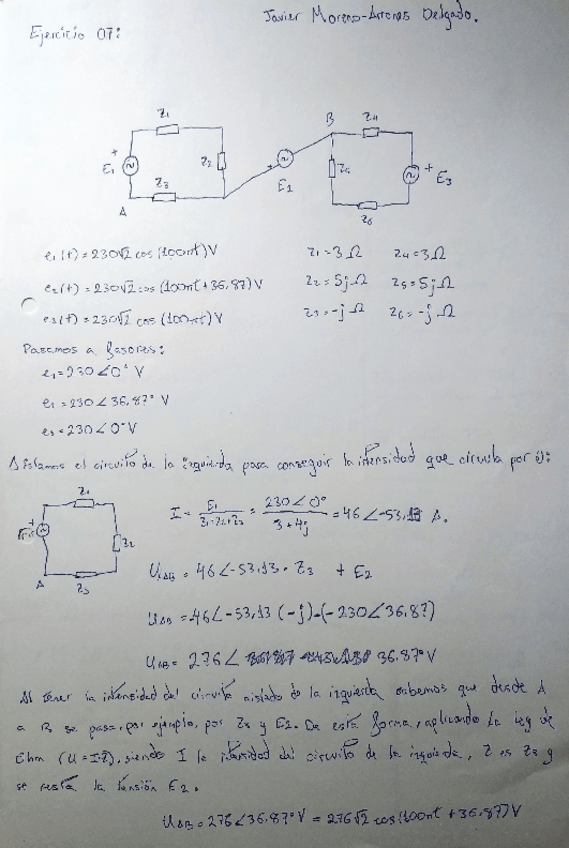 Javier Moreno-Arrones Delgado.
Ejercicio 07:
Z1
B
Z4
+
E1
Z2
E2
Z5
+ E3
Z3
A
Z6
e1(t) = 230√2 cos (100πt) V
Z1 = 3 Ω
Z4 = 3 Ω
e2(t) = 230√2 cos (100πt + 36.87) V
Z2 = 5j Ω
Z5 = 5j Ω
e3(t) = 230√2 cos (100πt) V
Z3 = -j Ω
Z6 = -j Ω
Pasamos a fasores:
e1 = 230∠0° V
= 230∠36.87° V
e3 = 230∠0° V
Aislamos el circuito de la izquierda para conseguir la intensidad que circula por él:
Z1
+
Z2
A
Z3
I = E1 / = 230∠0° / 3+4j = 46∠-53,13 A.
UAB = 46∠-53.13 · Z3 + E2
UAB = 46∠-53,13 (-j) - (-230∠36.87)
UAB = 276∠ 36.87° V
Al tener la intensidad del circuito aislado de la izquierda sabemos que desde A
a B se pasa, por ejemplo, por Z3 y E2. De esta forma, aplicando la ley de
Ohm (U = I·Z), siendo I la intensidad del circuito de la izquierda, Z es Z3 y
se resta la tensión E2.
UAB = 276∠36.87° V = 276√2 cos (100πt + 36.87) V